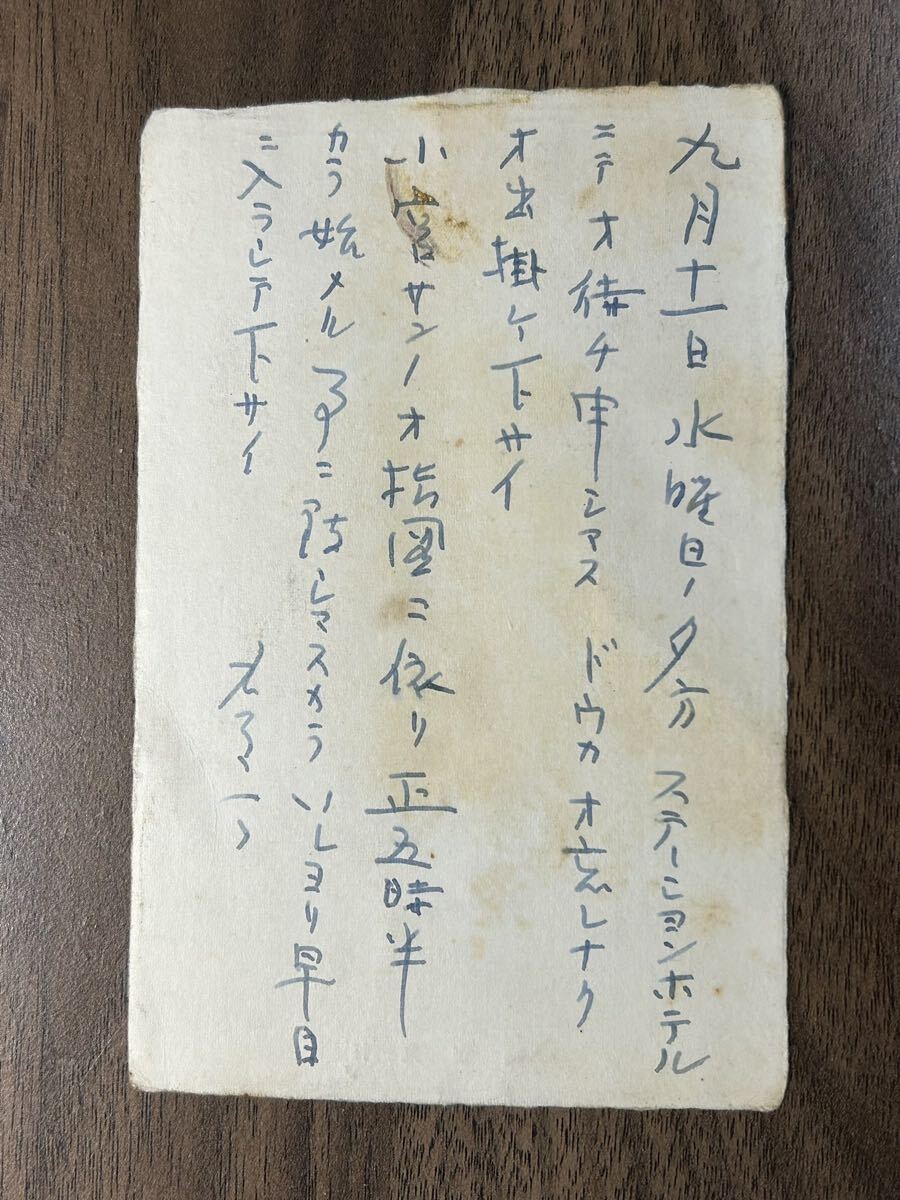 九月十一日 水曜日ノ夕方 ステーションホテル
ニテ オ待チ申シマス ドウカオ忘レナク
オ出掛ケ下サイ
小宮サンノオ指図ニ依リ 正五時半
カラ始メル事ニ致シマスカラ ソレヨリ早目
ニ入ラレテ下サイ